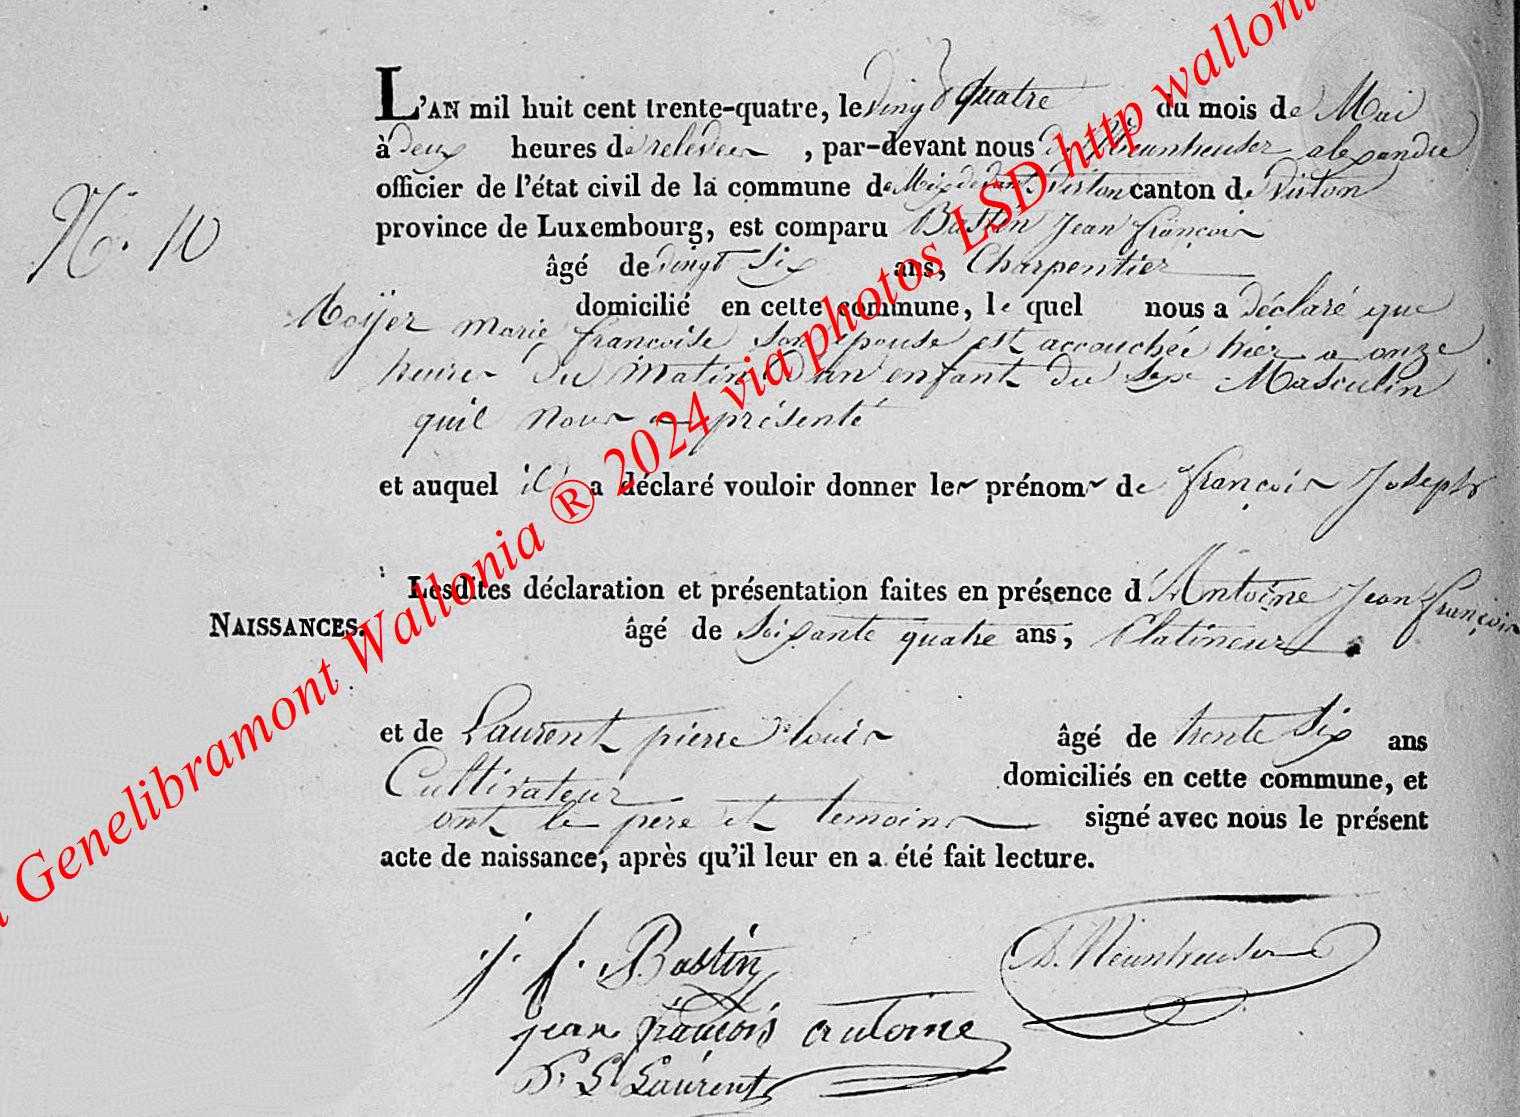 L'AN mil huit cent trente-quatre, le vingt quatre du mois de Mai
à deux heures de relevée , par-devant nous Neunheuser alexandre
officier de l'état civil de la commune de Meix devant Virton canton de Virton
province de Luxembourg, est comparu Bastin Jean françois
N°. 10
âgé de vingt Six ans, Charpentier
domicilié en cette commune, le quel nous a déclaré que
Moÿer marie françoise Son épouse est accouchée hier a onze
heures du matin d'un enfant du Sexe Masculin
quil nous a présenté
et auquel il a déclaré vouloir donner les prénoms de françois Joseph
Lesdites déclaration et présentation faites en présence d'Antoine Jean François
NAISSANCES. âgé de Soixante quatre ans, Platineur
et de Laurent pierre louis âgé de trente Six ans
Cultivateur domiciliés en cette commune, et
ont le pere et temoins signé avec nous le présent
acte de naissance, après qu'il leur en a été fait lecture.
j. f. Bastin A. Neunheuser
jean françois antoine
P. L. Laurent
Genelibramont Wallonia ® 2024 via photos LSD http wallonia